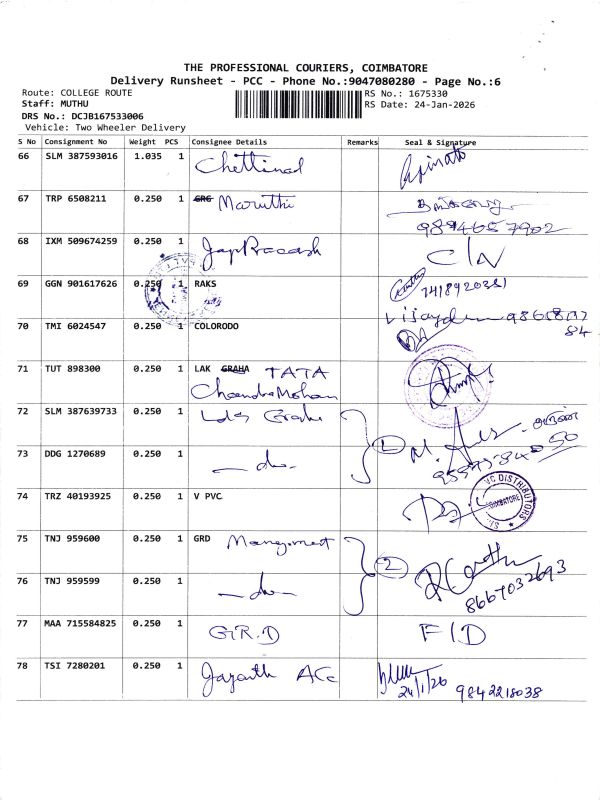 THE PROFESSIONAL COURIERS, COIMBATORE
Delivery Runsheet - PCC - Phone No.:9047080280 - Page No.:6
Route: COLLEGE ROUTE
RS No.: 1675330
Staff: MUTHU
RS Date: 24-Jan-2026
DRS No.: DCJB167533006
Vehicle: Two Wheeler Delivery
S No Consignment No Weight PCS Consignee Details Remarks Seal & Signature
66 SLM 387593016 1.035 1 Chettinad
67 TRP 6508211 0.250 1 GRG Maruthi
9894657902
68 IXM 509674259 0.250 1 JayPracash C/N
69 GGN 901617626 0.250 1 RAKS 7418920381
70 TMI 6024547 0.250 1 COLORODO
71 TUT 898300 0.250 1 LAK GRAHA TATA
ChandraMohan
72 SLM 387639733 0.250 1
1
73 DDG 1270689 0.250 1 — do —
74 TRZ 40193925 0.250 1 V PVC VC DISTRIBUTORS COIMBATORE
75 TNJ 959600 0.250 1 GRD Mangement
2
76 TNJ 959599 0.250 1 — do —
8667032693
77 MAA 715584825 0.250 1 G.R.D F/D
78 TSI 7280201 0.250 1 Jayanth ACc
24/1/26 9842218038